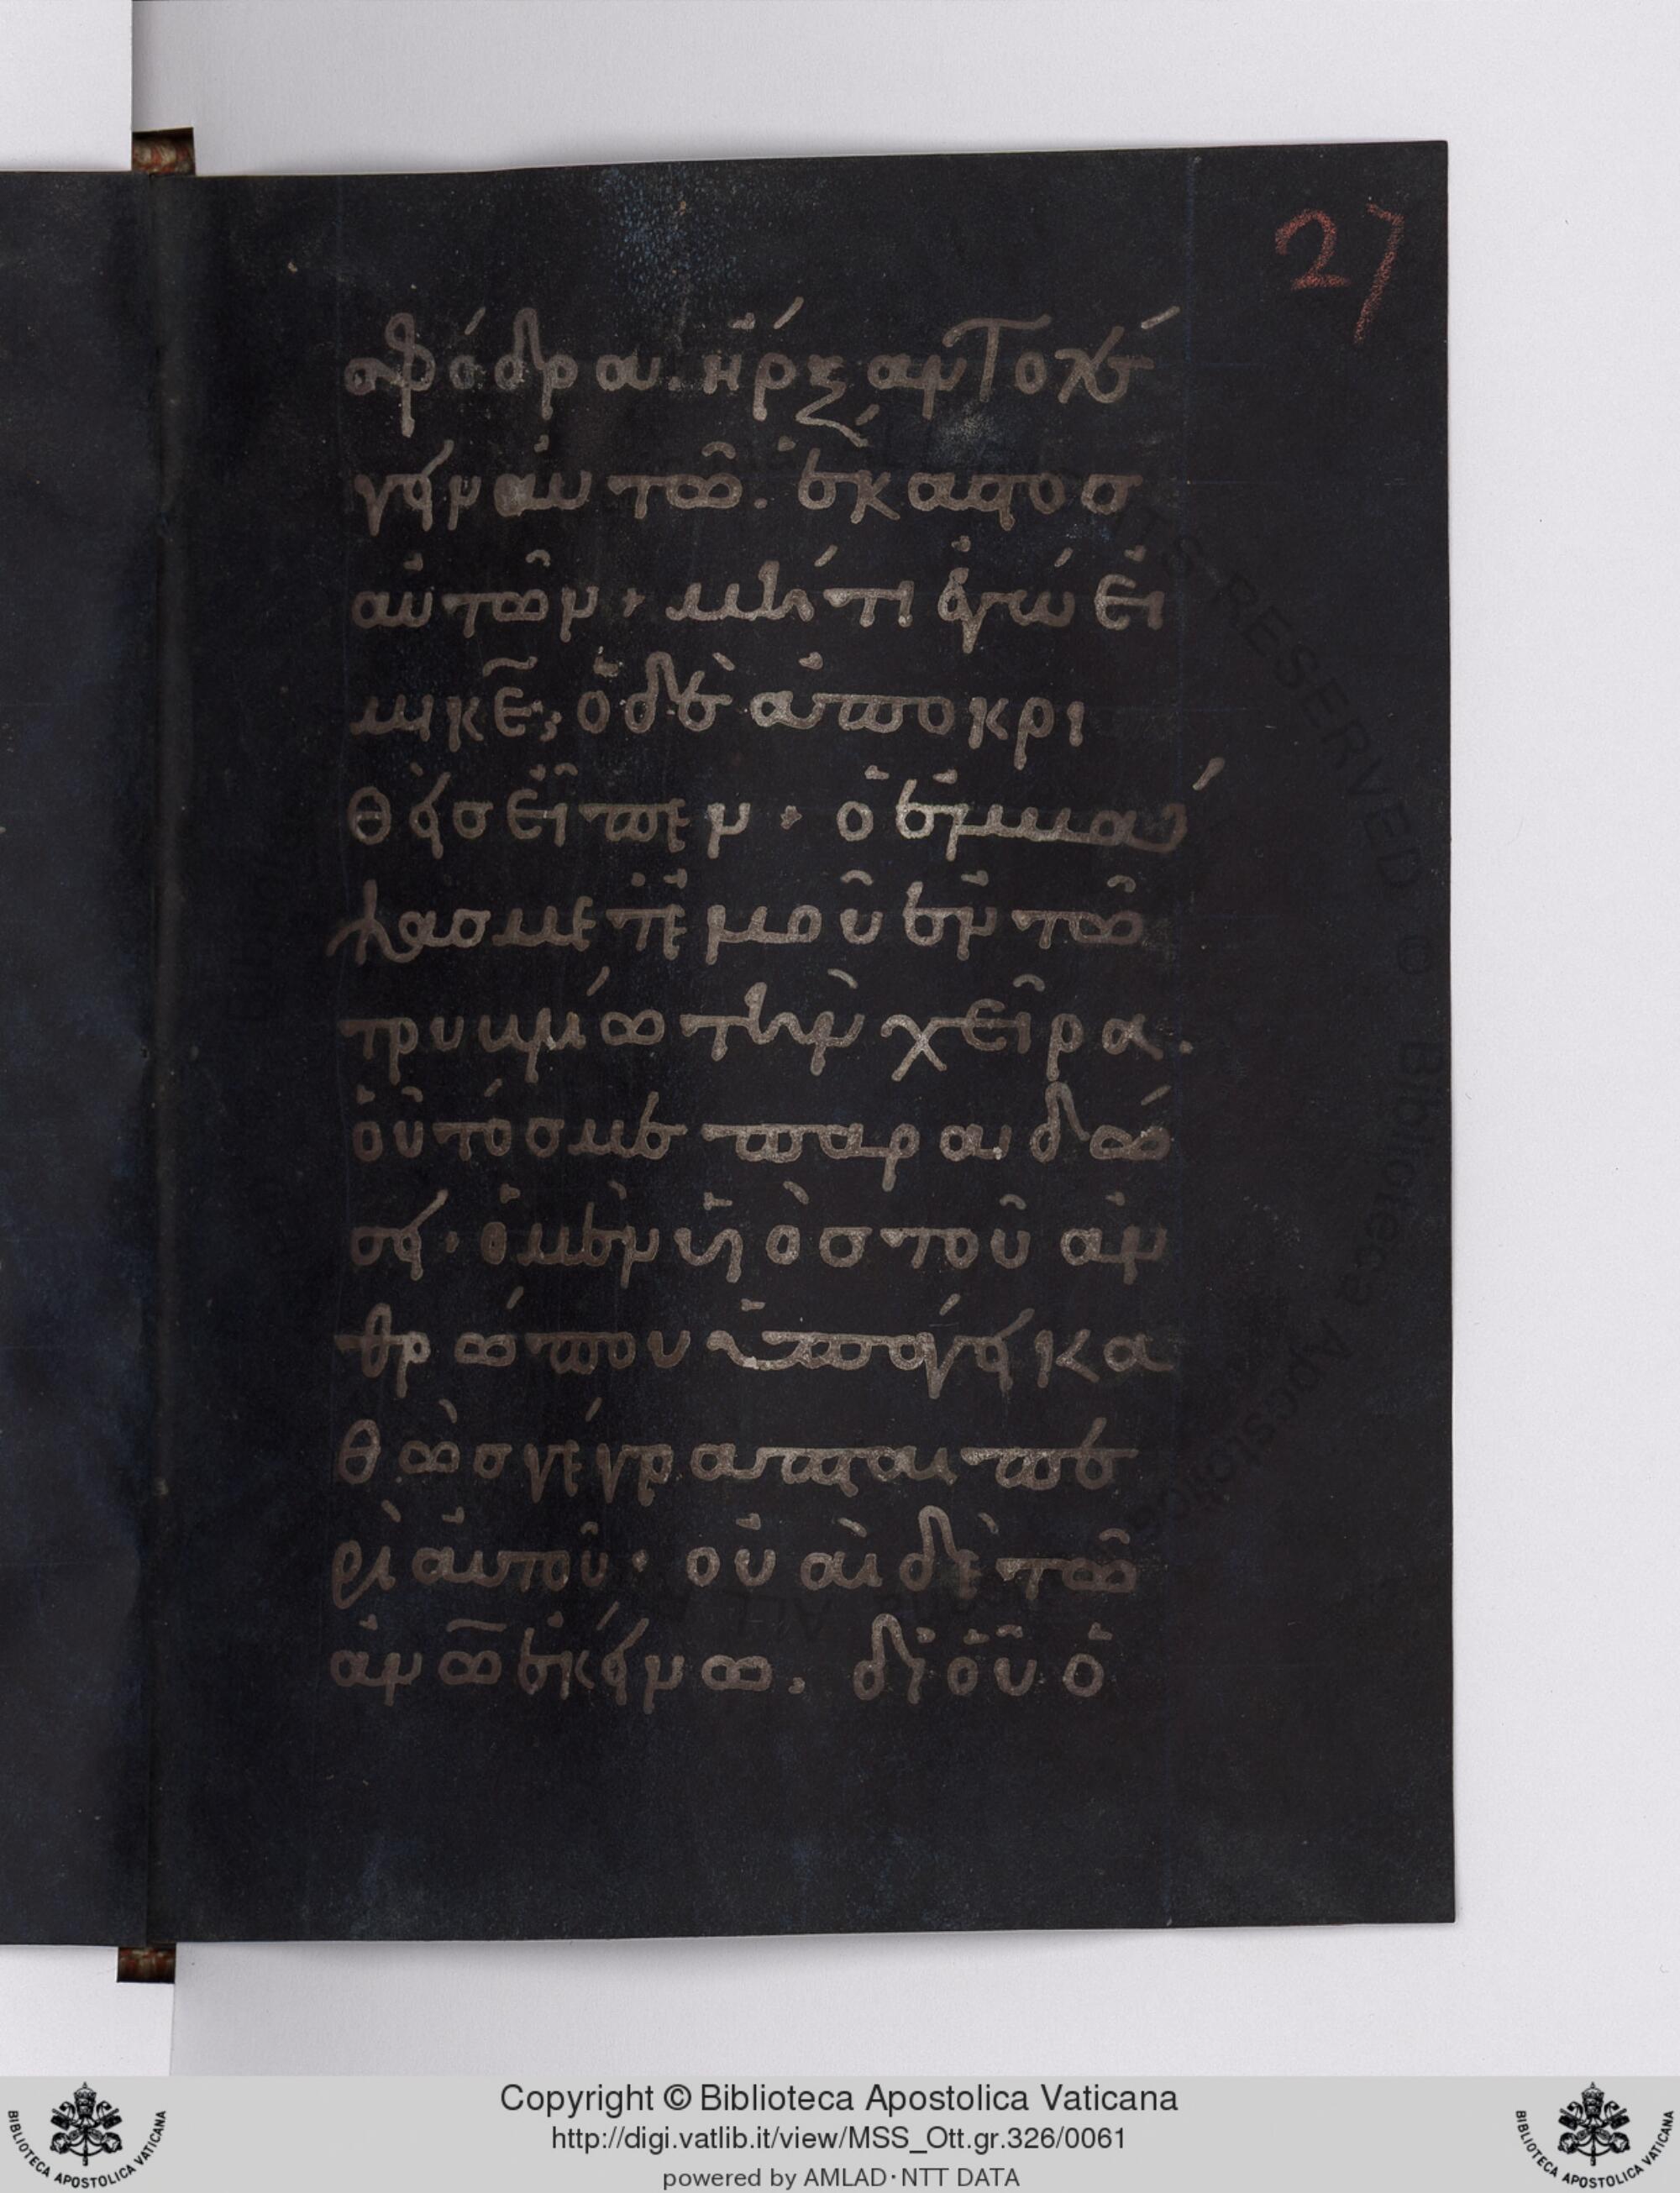 27
σφόδρα. ἤρξαντο λέ
γειν αὐτῶ. ἕκαστος
αὐτῶν· μήτι ἐγώ εἰ
μι κ̅ε̅; ὁ δὲ ἀποκρι
θεὶς εἶπεν· ὁ ἐμβά
ψας μετ ἐμοῦ ἐν τῶ
τρυβλίω τὴν χεῖρα.
οὗτός με παραδώ
σει· ὁ μὲν υἱὸς τοῦ ἀν
θρώπου ὑπάγει κα
θὼς γέγραπται πε
ρὶ αὐτοῦ· οὐαὶ δὲ τῶ
ἀν̅ω̅ ἐκείνω. δι οὗ ὁ
Copyright © Biblioteca Apostolica Vaticana
http://digi.vatlib.it/view/MSS_Ott.gr.326/0061
powered by AMLAD·NTT DATA
BIBLIOTECA APOSTOLICA VATICANA
BIBLIOTECA APOSTOLICA VATICANA